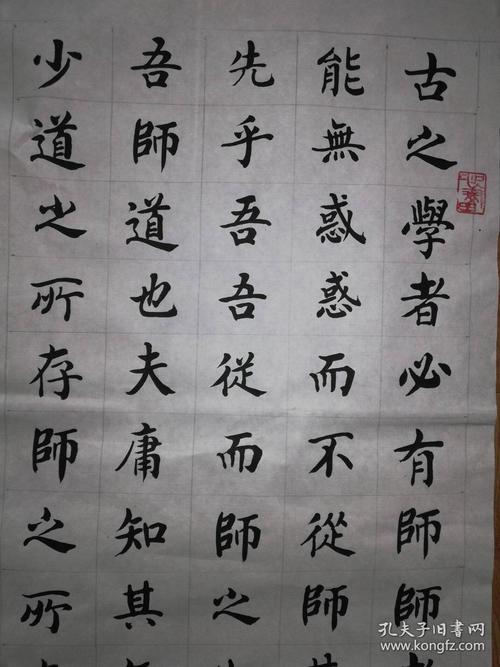 古之學者必有師師
能無惑惑而不從師
先乎吾吾從而師之
吾師道也夫庸知其
少道之所存師之所
孔夫子旧书网
www.kongfz.com